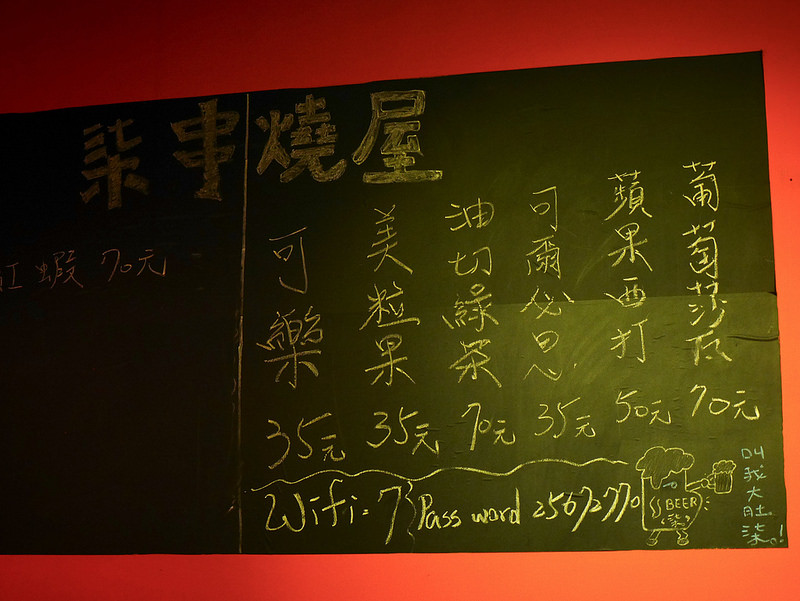 柒串燒屋
蝦 70元
葡萄莎瓦 70元
蘋果西打 50元
可爾必思 35元
油切綠茶 70元
美粒果 35元
可樂 35元
Wifi: 7 Pass word 25672770
BEER
柒
叫我大肚柒。!